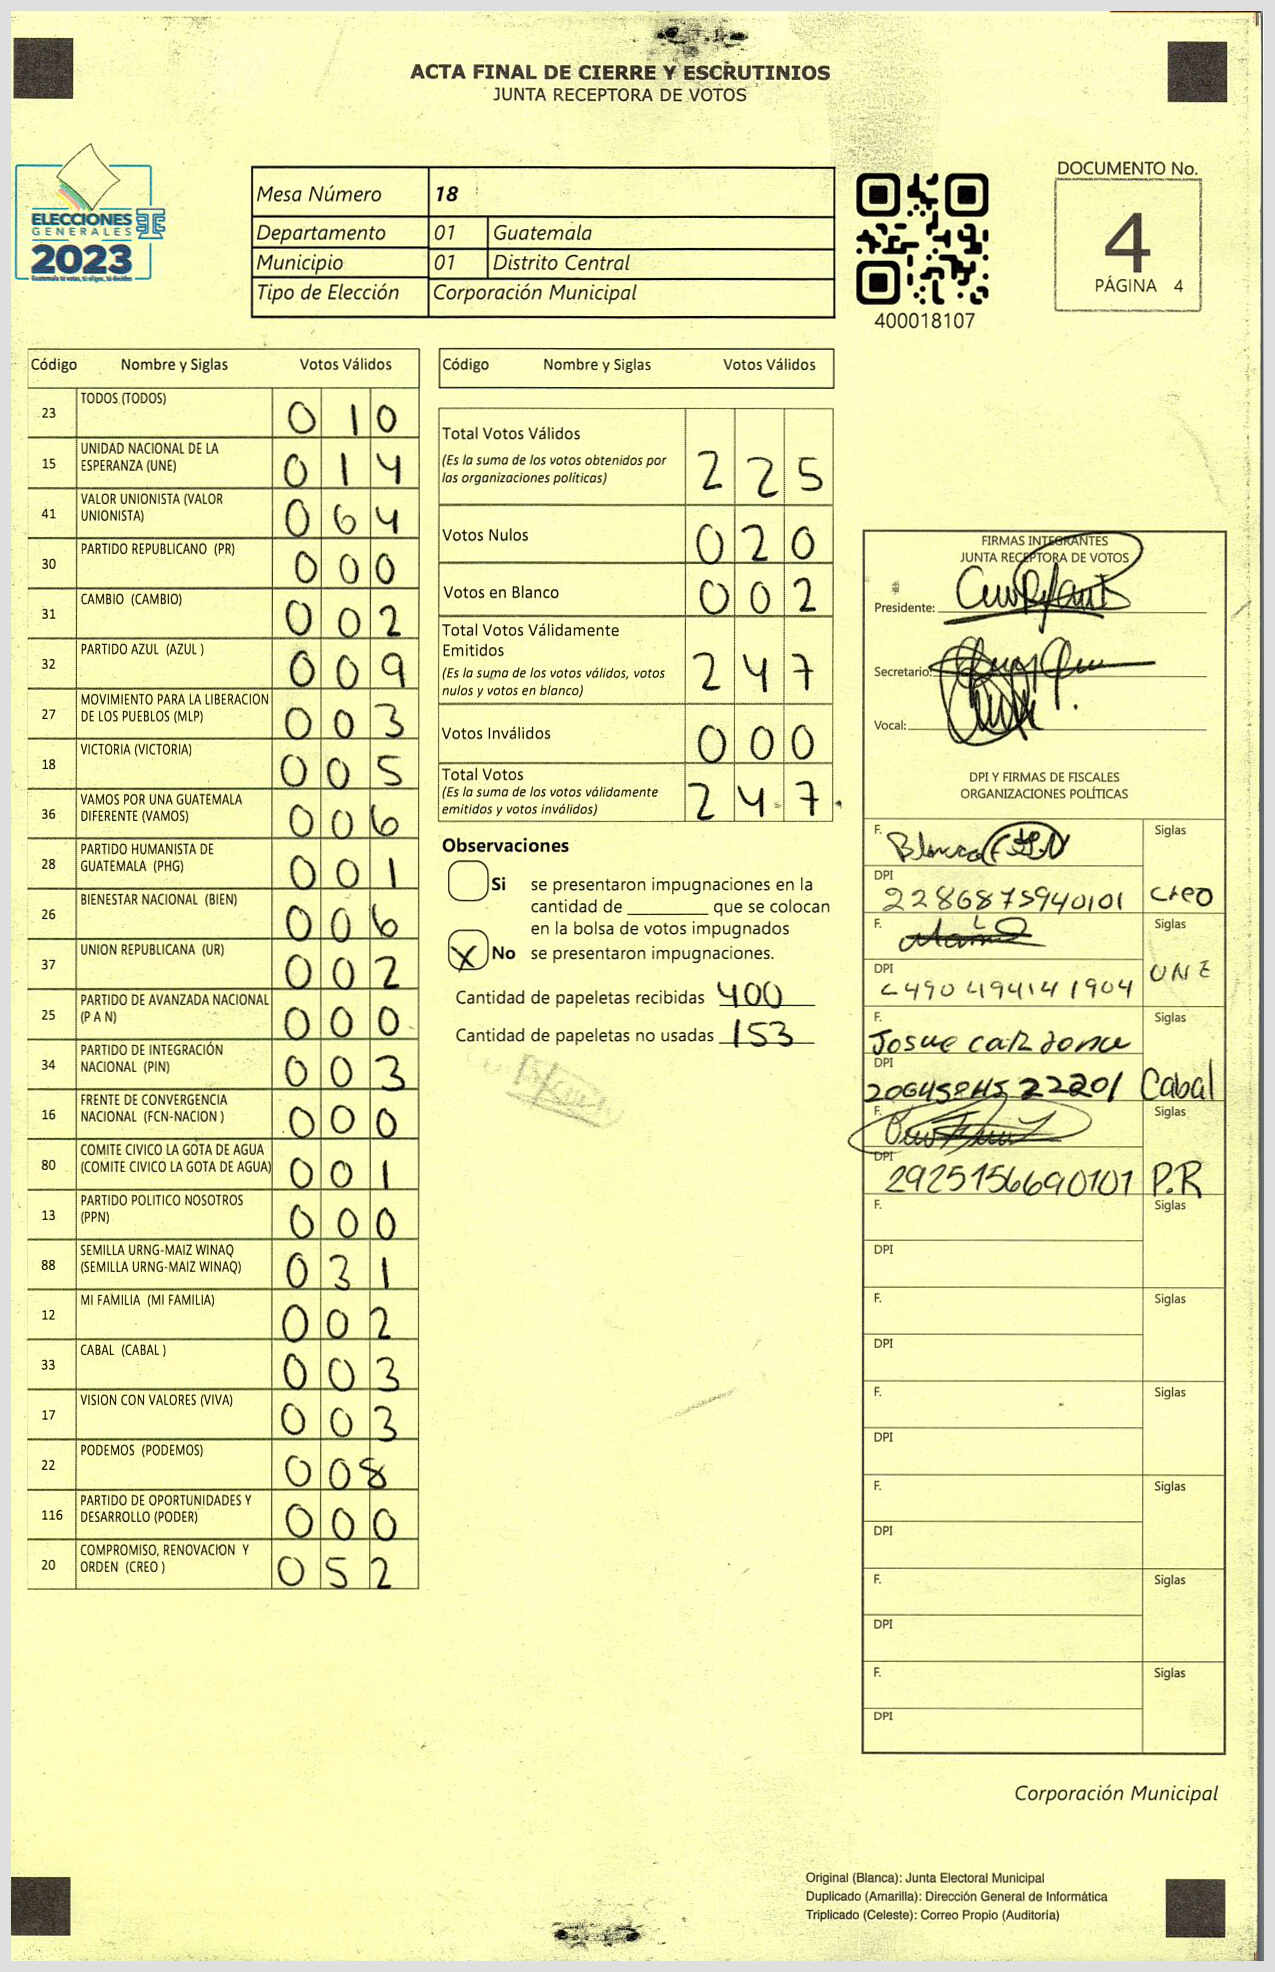 ACTA FINAL DE CIERRE Y ESCRUTINIOS
JUNTA RECEPTORA DE VOTOS
ELECCIONES
GENERALES
2023
Guatemala tú votas, tú eliges, tú decides
Mesa Número 18
Departamento 01 Guatemala
Municipio 01 Distrito Central
Tipo de Elección Corporación Municipal
400018107
DOCUMENTO No.
4
PÁGINA 4
Código Nombre y Siglas Votos Válidos
23 TODOS (TODOS) 0 1 0
15 UNIDAD NACIONAL DE LA
ESPERANZA (UNE) 0 1 4
41 VALOR UNIONISTA (VALOR
UNIONISTA) 0 6 4
30 PARTIDO REPUBLICANO (PR) 0 0 0
31 CAMBIO (CAMBIO) 0 0 2
32 PARTIDO AZUL (AZUL ) 0 0 9
27 MOVIMIENTO PARA LA LIBERACION
DE LOS PUEBLOS (MLP) 0 0 3
18 VICTORIA (VICTORIA) 0 0 5
36 VAMOS POR UNA GUATEMALA
DIFERENTE (VAMOS) 0 0 6
28 PARTIDO HUMANISTA DE
GUATEMALA (PHG) 0 0 1
26 BIENESTAR NACIONAL (BIEN) 0 0 6
37 UNION REPUBLICANA (UR) 0 0 2
25 PARTIDO DE AVANZADA NACIONAL
(P A N) 0 0 0
34 PARTIDO DE INTEGRACIÓN
NACIONAL (PIN) 0 0 3
16 FRENTE DE CONVERGENCIA
NACIONAL (FCN-NACION ) 0 0 0
80 COMITE CIVICO LA GOTA DE AGUA
(COMITE CIVICO LA GOTA DE AGUA) 0 0 1
13 PARTIDO POLITICO NOSOTROS
(PPN) 0 0 0
88 SEMILLA URNG-MAIZ WINAQ
(SEMILLA URNG-MAIZ WINAQ) 0 3 1
12 MI FAMILIA (MI FAMILIA) 0 0 2
33 CABAL (CABAL ) 0 0 3
17 VISION CON VALORES (VIVA) 0 0 3
22 PODEMOS (PODEMOS) 0 0 8
116 PARTIDO DE OPORTUNIDADES Y
DESARROLLO (PODER) 0 0 0
20 COMPROMISO, RENOVACION Y
ORDEN (CREO ) 0 5 2
Código Nombre y Siglas Votos Válidos
Total Votos Válidos
(Es la suma de los votos obtenidos por
las organizaciones políticas) 2 2 5
Votos Nulos 0 2 0
Votos en Blanco 0 0 2
Total Votos Válidamente
Emitidos
(Es la suma de los votos válidos, votos
nulos y votos en blanco) 2 4 7
Votos Inválidos 0 0 0
Total Votos
(Es la suma de los votos válidamente
emitidos y votos inválidos) 2 4 7
Observaciones
Si se presentaron impugnaciones en la
cantidad de ________ que se colocan
en la bolsa de votos impugnados
X No se presentaron impugnaciones.
Cantidad de papeletas recibidas 400
Cantidad de papeletas no usadas 153
FIRMAS INTEGRANTES
JUNTA RECEPTORA DE VOTOS
Presidente:
Secretario:
Vocal:
DPI Y FIRMAS DE FISCALES
ORGANIZACIONES POLÍTICAS
F. Blanca Siglas
DPI
2286875940101 creo
F. Siglas
DPI UNE
F. Josue Siglas
DPI
Cabal
F. Siglas
DPI
2925156690101 P.R
F. Siglas
DPI
F. Siglas
DPI
F. Siglas
DPI
F. Siglas
DPI
F. Siglas
DPI
F. Siglas
DPI
Corporación Municipal
Original (Blanca): Junta Electoral Municipal
Duplicado (Amarilla): Dirección General de Informática
Triplicado (Celeste): Correo Propio (Auditoría)